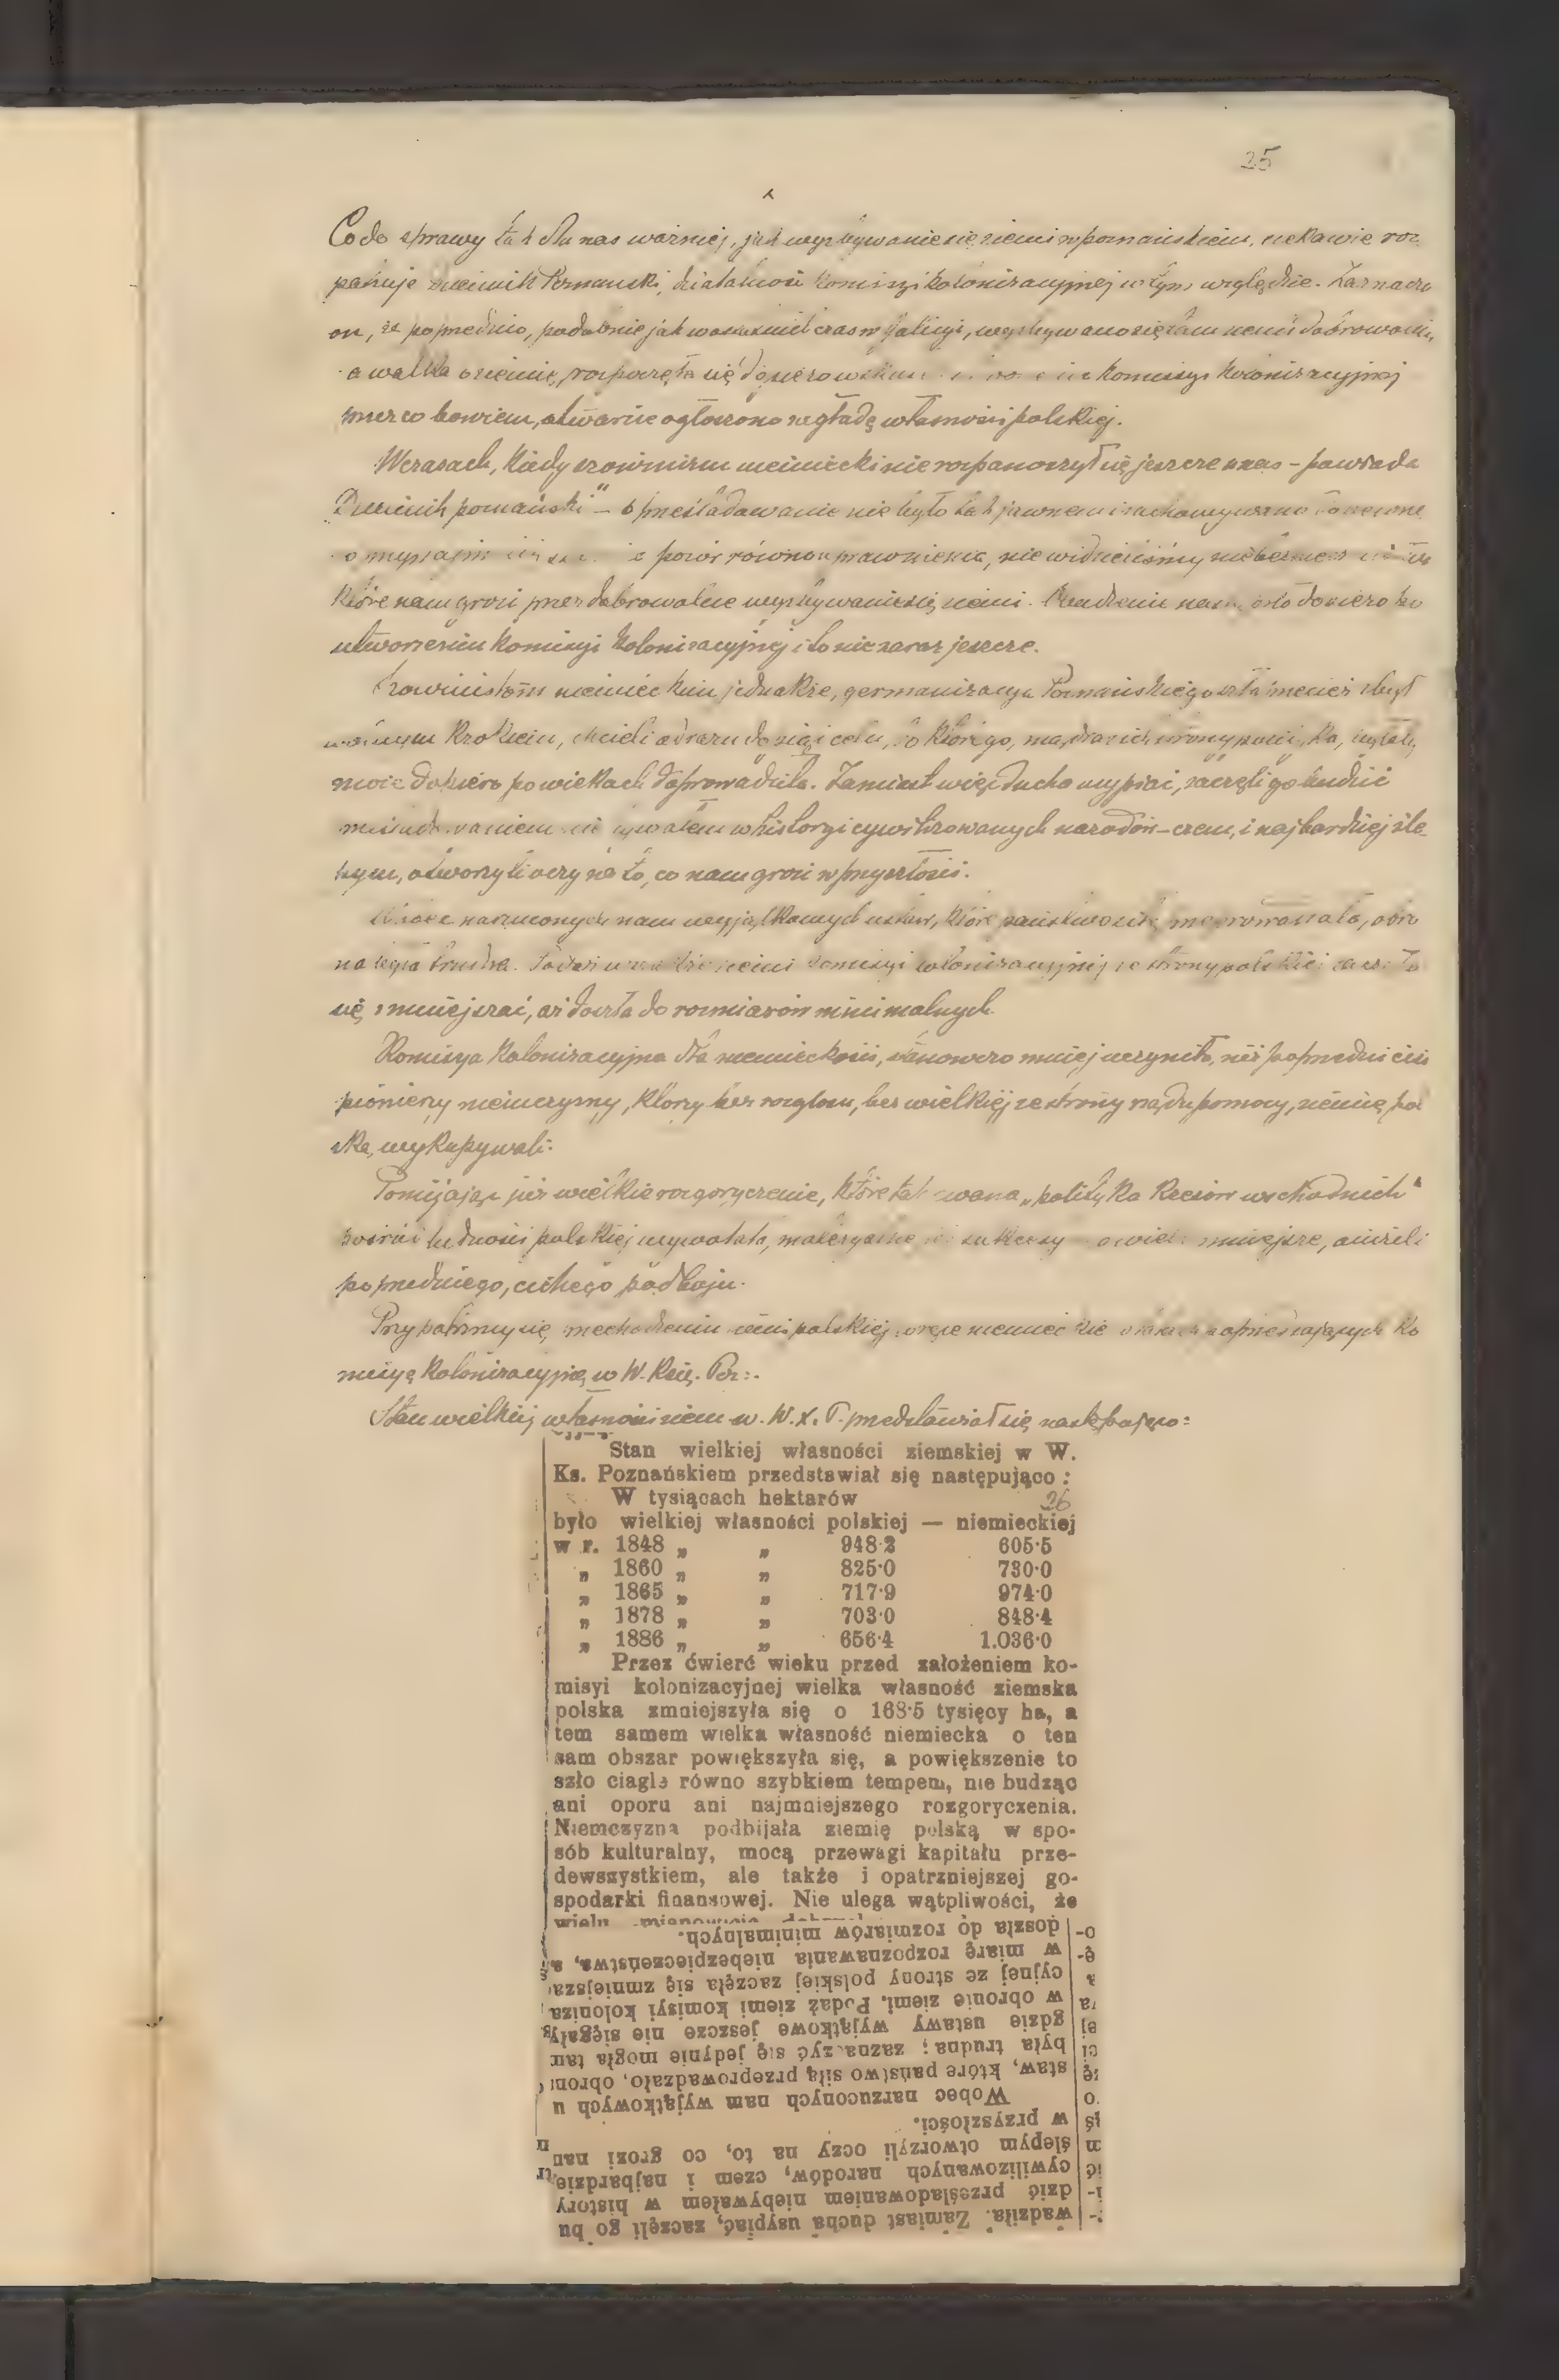 25
Co do sprawy tak dla nas ważnej, jak wyzbywanie się ziemi w poznańskiem, ciekawie roz
patruje Dziennik Poznański, działalność komisyi kolonizacyjnej w tym względzie. Zaznacza
on, że poprzednio, podobnie jak w czas w Galicyi, wyzbywano się tam ziemi dobrowolnie,
a walka o ziemię, rozpoczęła się dopiero komisyi kolonizacyjnej
bowiem, otwarcie ogłoszono zagładę własności polskiej.
W czasach, kiedy szowinizm niemiecki nie rozpanoszył się jeszcze u nas – powiada
"Dziennik poznański" – prześladowanie nie było tak jawnem i zachowywano
pozór równouprawnienia, nie widzieliśmy
które nam grozi przez dobrowolne wyzbywanie się ziemi. dopiero po
utworzeniu komisyi kolonizacyjnej i to nie zaraz jeszcze.
Szowinistom niemieckim jednakże, germanizacya Poznańskiego szła przecież zbyt
wolnym krokiem, chcieli odrazu dosięgnąć celu, do którego,
może dopiero po wiekach doprowadziła. Zamiast więc ducha usypiać, zaczęli go budzić
w historyi cywilizowanych narodów – czem, i najbardziej śle-
pym, otworzyli oczy na to, co nam grozi w przyszłości.
Wobec narzuconych nam wyjątkowych ustaw, które państwo siłą przeprowadzało, obro
na była trudna. ziemi komisyi kolonizacyjnej ze strony polskiej zaczęła
się zmniejszać, aż doszła do rozmiarów minimalnych.
Komisya kolonizacyjna dla niemieckości, stanowczo mniej uczyniła, niż poprzedni cisi
pionierzy niemczyzny, którzy bez rozgłosu, bez wielkiej ze strony rządu pomocy, ziemię pol
ską wykupywali.
Pomijając już wielkie rozgoryczenie, które tak zwana „polityka kresów wschodnich"
wśród ludności polskiej wywołała, materyalne jej sukcesy o wiele mniejsze, aniżeli
poprzedniego, cichego podboju.
Przypatrzmy się przechodzeniu ziemi polskiej w ręce niemieckie w latach poprzedzających ko
misyę kolonizacyjną w W. Księ. Poz:.
Stan wielkiej własności ziem. w. W. X. P. przedstawiał się następująco:
Stan wielkiej własności ziemskiej w W.
Ks. Poznańskiem przedstawiał się następująco :
W tysiącach hektarów 26
było wielkiej własności polskiej — niemieckiej
w r. 1848 „ „ 948·2 605·5
„ 1860 „ „ 825·0 730·0
„ 1865 „ „ 717·9 974·0
„ 1878 „ „ 703·0 848·4
„ 1886 „ „ 656·4 1.036·0
Przez ćwierć wieku przed założeniem ko-
misyi kolonizacyjnej wielka własność ziemska
polska zmniejszyła się o 168·5 tysięcy ha, a
tem samem wielka własność niemiecka o ten
sam obszar powiększyła się, a powiększenie to
szło ciągle równo szybkiem tempem, nie budząc
ani oporu ani najmniejszego rozgoryczenia.
Niemczyzna podbijała ziemię polską w spo-
sób kulturalny, mocą przewagi kapitału prze-
dewszystkiem, ale także i opatrzniejszej go-
spodarki finansowej. Nie ulega wątpliwości, że
wadziła. Zamiast ducha usypiać, zaczęli go bu
dzić prześladowaniem niebywałem w history
cywilizowanych narodów, czem i najbardzie
ślepym otworzyli oczy na to, co grozi nan
w przyszłości.
Wobec narzuconych nam wyjątkowych u
staw, które państwo siłą przeprowadzało, obron
była trudna; zaznaczyć się jedynie mogła tan
gdzie ustawy wyjątkowe jeszcze nie sięgały
w obronie ziemi. Podaż ziemi komisyi koloniza
cyjnej ze strony polskiej zaczęła się zmniejsza
w miarę rozpoznawania niebezpieczeństwa, a
doszła do rozmiarów minimalnych.